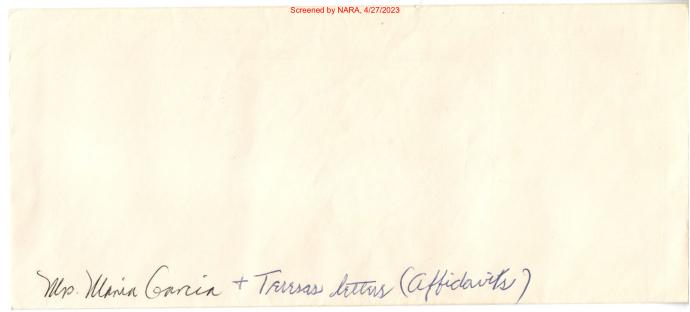 Screened by NARA, 4/27/2023
Mrs. Maria Garcia + Teresas letters (Affidavits)